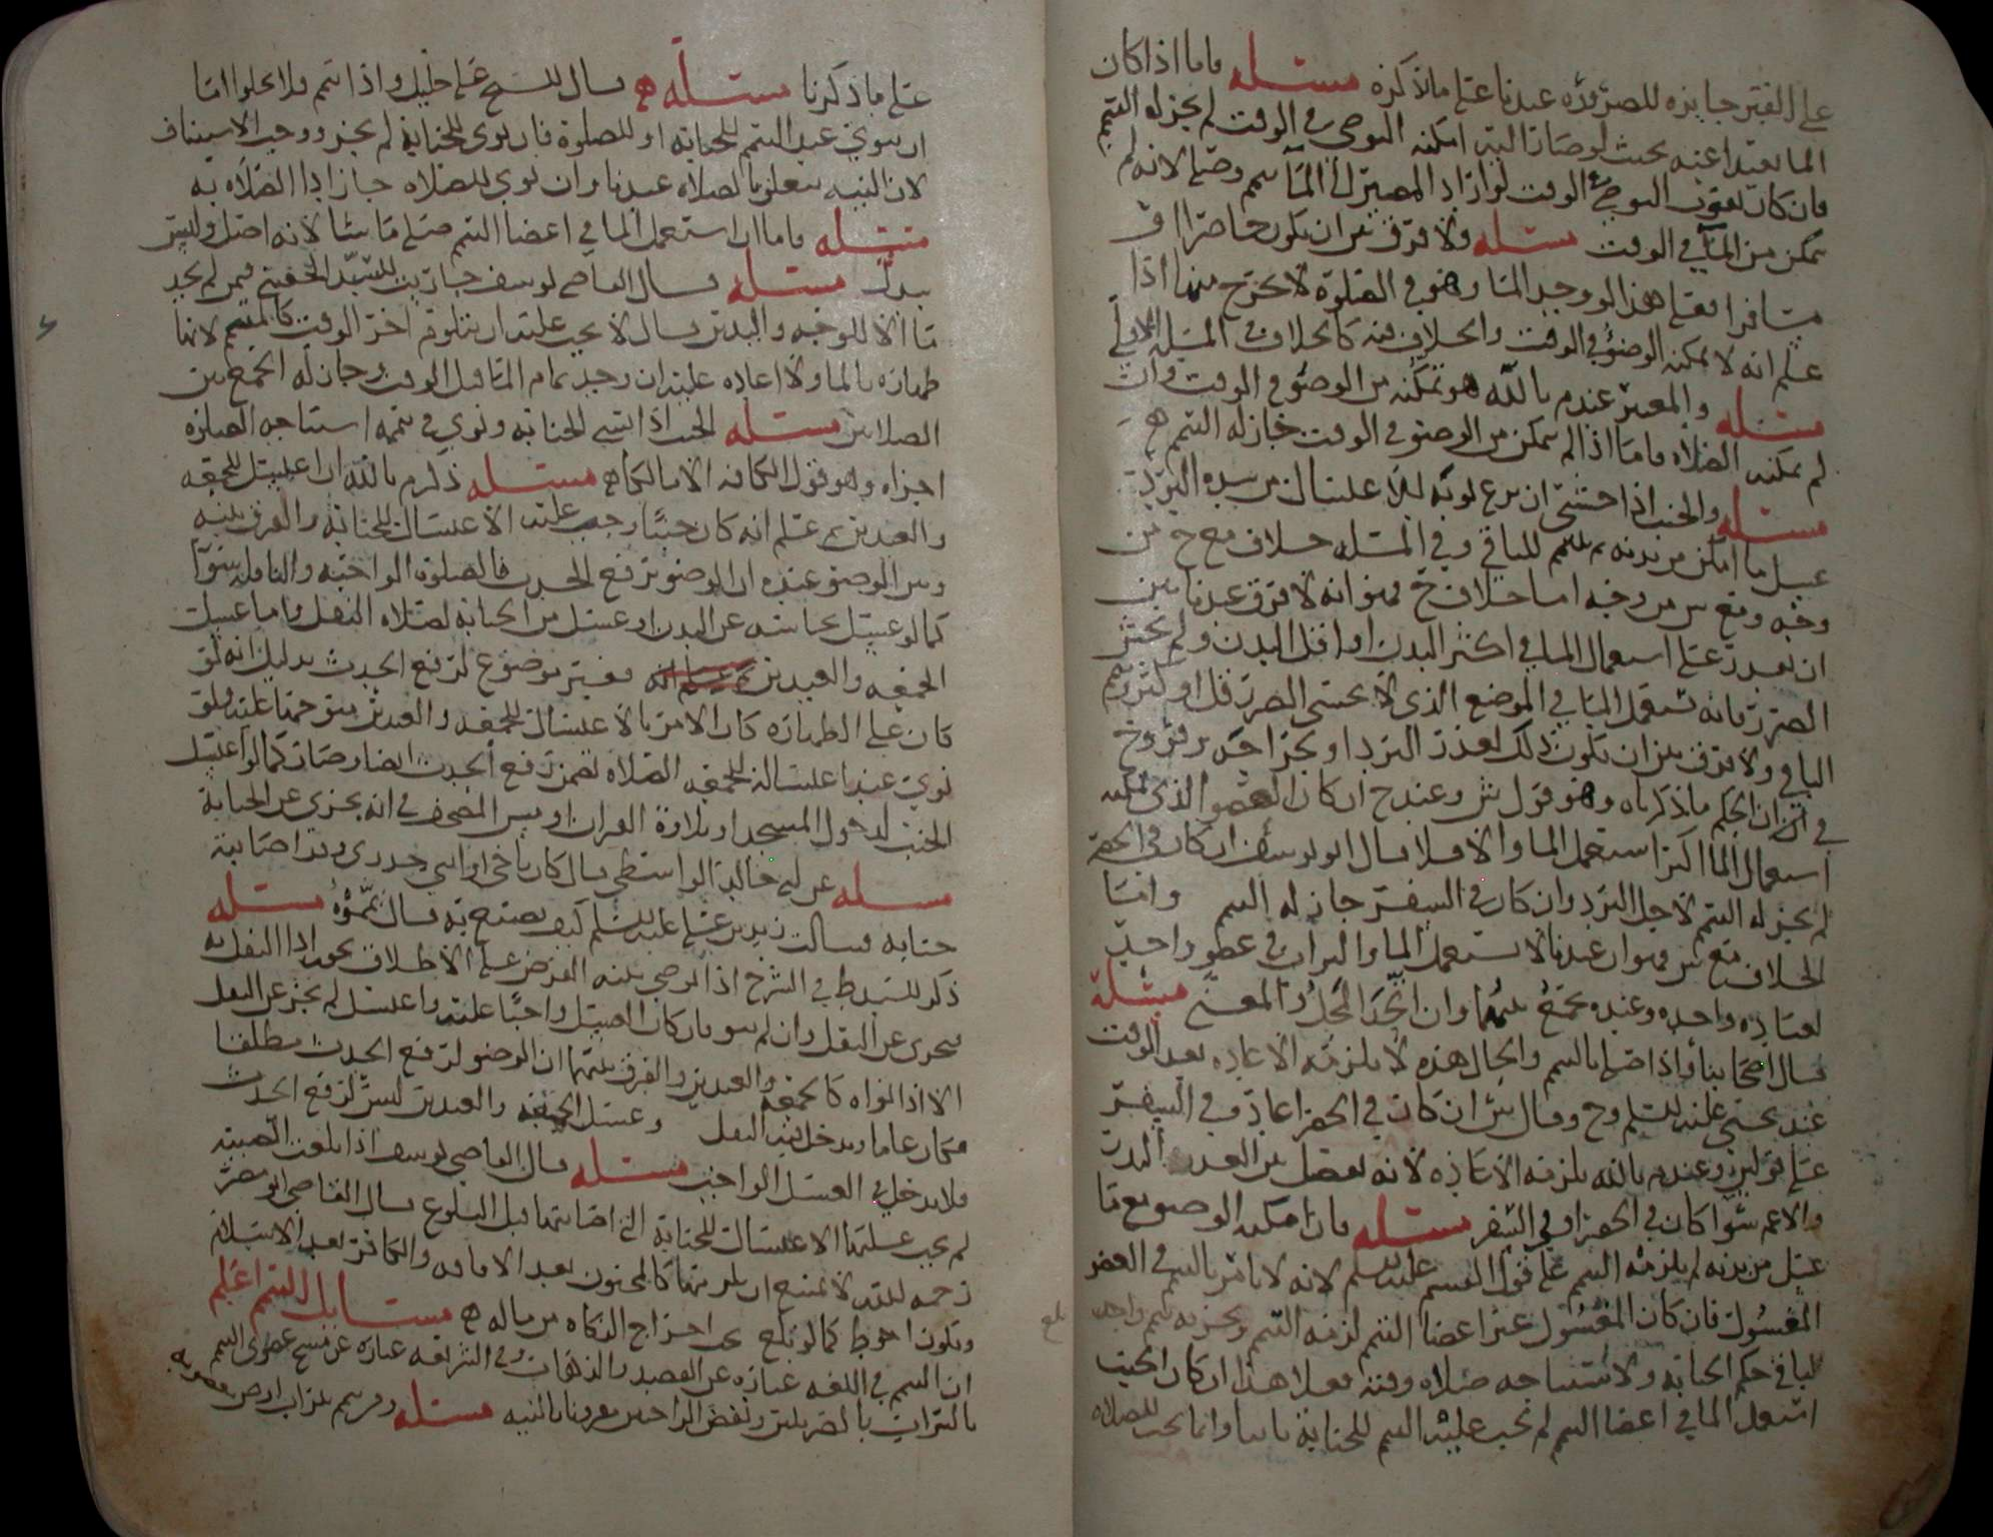 على الفقير جايزه للضروره عندنا على ما لا نذكره مسئله فاما اذا كان
الما بعيدا عنه بحيث لو صار اليه امكنه التوضي في الوقت لم يجز له التيمم
فان كان يفوت التوضي الوقت لو اراد المصير الى الما تيمم وصلى لانه لم
يتمكن من الما في الوقت مسئله ولا فرق بين ان يكون حاضرا او
مسافرا فعلى هذا لو وجد الما وهو في الصلوة لا يخرج منها اذا
علم انه لا يمكنه الوضو في الوقت والخلاف فيه كالخلاف في المسله الاولى
مسئله والمعتبر عند م بالله هو تمكنه من الوضو في الوقت وان
لم يمكنه الصلاه فاما اذا لم يتمكن من الوضو في الوقت جاز له التيمم
مسئله والجنب اذا خشي ان من الاغتسال من شده البرد
غسل ما امكن من بدنه ثم تيمم للباقي وفي المسله خلاف مع ح من
وجه ومع ش من وجه اما خلاف ح فهو انه لا فرق عندنا بين
ان يقدر على استعمال الما في اكثر البدن او اقل البدن ولم يخش
الضرر فانه يستعمل الما في الموضع الذي لا يخشى الضرر قل او كثر وتيمم
الباقي ولا فرق بين ان يكون ذلك لعذر البرد او بجراحه وقروح
في ان الحكم ما ذكرناه وهو قول ش وعند ح ان كان العضو الذي يمكنه
استعمال الما اكثر استعمل الما والا فلا قال ابو يوسف ان كان في الحضر
لم يجز له التيمم لاجل البرد وان كان في السفر جاز له التيمم واما
الخلاف مع ش فهو ان عندنا لا يستعمل الما والتراب في عضو واحد
لعباده واحده وعنده يجمع بينهما وان اتحد المحل والمعنى مسئلة
قال اصحابنا واذا صلى بالتيمم والحال هذه لا يلزمه الاعاده بعد الوقت
عند يحيى عليه السلم وح وقال ش ان كان في الحضر اعاد وفي السفر
على قولين وعند م بالله يلزمه الاعاذه لانه يفصل بين العذر النادر
والاعم سوا كان في الحضر او في السفر مسئله فان امكنه الوضو مع ما
غسل من بدنه لم يلزمه التيمم على قول القسم عليه السلم لانه لا يامر بالتيمم في العضو
المغسول فان كان المغسول غير اعضا التيمم لزمه التيمم ويجزيه تيمم واحد
لباقي حكم الجنابه ولاستباحه صلاه وقته فعلا هذا ان كان الجنب
استعمل الما في اعضا التيمم لم يجب عليه التيمم للجنابة ثانيا وانما يجب للصلاه
على ما ذكرنا مسئله قال الشيخ على خليل واذا تيمم فلا يخلوا اما
ان ينوي عند التيمم للجنابه او للصلوة فان نوى للجنابة لم يجز ووجب الاستيناف
لان النيه تتعلق بالصلاه عندنا وان نوى للصلاه جاز ادا الصلاه به
مسئله فاما ان استعمل الما في اعضا التيمم صلى ما شا لانه اصل وليس
ببدل مسئله قال القاضي يوسف جاريه للسيد الحقيني فيمن لم يجد
ما الا للوجه واليدين قال لا يجب عليه ان يتلوم اخر الوقت كالمتيمم لانها
طهاره بالما ولا اعاده عليه ان وجد تمام الما قبل الوقت وجاز له الجمع بين
الصلاتين مسئله الجنب اذا نسي الجنابه ونوى في تيممه استباحه الصلوه
اجزاه وهو قول الكافه الا مالكا مسئله ذكر م بالله ان اغتسل للجمعه
والعيدين ثم علم انه كان جنبا وجب عليه الاغتسال للجنابه والفرق بينه
وبين الوضو عنده ان الوضو يرفع الحدث فالصلوه الواجبه والنافله سوا
كما لو غسل نجاسته عن البدن او غسل من الجنابه لصلاه النفل واما غسل
الجمعه والعيدين فغير موضوع لرفع الحدث بدليل انه لو
كان على الطهاره كان الامر بالاغتسال للجمعه والعيدين متوجها عليه فلو
نوى عند اغتساله للجمعه الصلاه تضمن رفع الحدث ايضا وصار كما لو اغتسل
الجنب لدخول المسجد او تلاوة القران او مس المصحف في انه يجزي عن الجنابة
مسئله عن ابي خالد الواسطي قال كان باخي او ابني جدري وقد اصابته
جنابه فسالت زيد بن علي عليه السلم كيف يصنع به فقال يمموه مسئله
ذكر السيد ط في الشرح اذا توضى بنيه الفرض على الاطلاق يجوز ادا النفل به
ويجزي عن النفل وان لم ينو فان كان الغسل واجبا عليه واغتسل لم يجز عن النفل
الا اذا نواه كالجمعه والعيدين والفرق بينهما ان الوضو لرفع الحدث مطلقا
فكان عاما ويدخل فيه النفل وغسل الجمعه والعيدين ليس لرفع الحدث
فلا يدخل في الغسل الواجب مسئله قال القاضي يوسف اذا بلغت الصبيه
لم يجب عليها الاغتسال للجنابة التي اصابتها قبل البلوغ قال القاضي ابو مضر
رحمه الله لا يمتنع ان يلزمها كالمجنون بعد الافاقه والكافر بعد الاسلام
ويكون احوط كما لو بلغ يجب اخراج الزكاه من ماله مسايل التيمم اعلم
ان التيمم في اللغه عباره عن القصد والذهاب وفي الشريعه عباره عن مسح عضوي التيمم
بالتراب بالضربتين ونفض الراحتين مقرونا بالنيه مسئله ومن تيمم بتراب ارض
بلغ